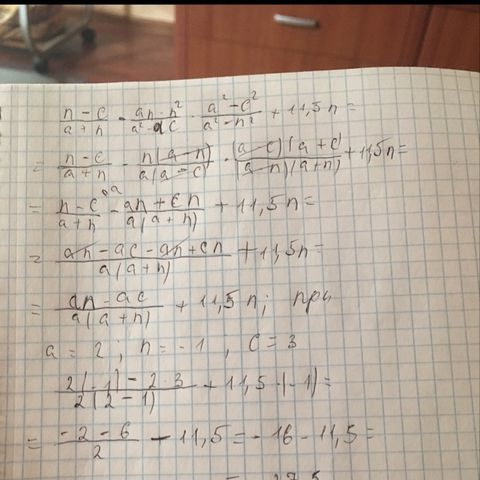 n-c/a+n - an-n²/a²-ac · a²-c²/a²-n² + 11,5n =
= n-c/a+n - n(a-n)/a(a-c) · (a-c)(a+c)/(a-n)(a+n) + 11,5n =
= n-c/a+n ·a - an+cn/a(a+n) + 11,5n =
= an-ac-an+cn/a(a+n) + 11,5n =
= an-ac/a(a+n) + 11,5n; при
a = 2; n = -1, c = 3
2(-1)-2·3/2(2-1) + 11,5·(-1) =
= -2-6/2 - 11,5 = -16 - 11,5 =